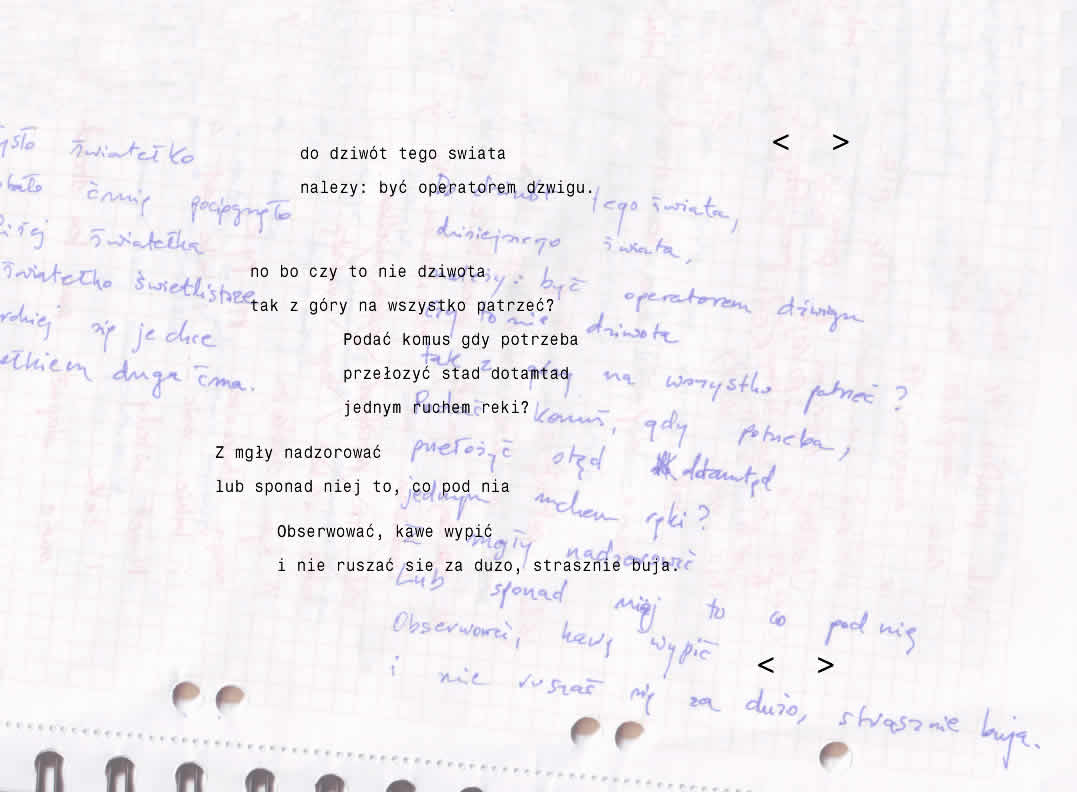 < >
do dziwót tego swiata
nalezy: być operatorem dzwigu.
no bo czy to nie dziwota
tak z góry na wszystko patrzeć?
Podać komus gdy potrzeba
przełozyć stad dotamtad
jednym ruchem reki?
Z mgły nadzorować
lub sponad niej to, co pod nia
Obserwować, kawe wypić
i nie ruszać sie za duzo, strasznie buja.
< >
światełko
ćmię pociągnęło
światełka
światełko świetlistsze
się je chce
druga ćma.
Do dziwót tego świata,
dzisiejszego świata,
należy: być operatorem dźwigu
czy to nie dziwota
tak z góry na wszystko patrzeć?
Podać komuś, gdy potrzeba,
przełożyć stąd dotamtąd
jednym ruchem ręki?
Z mgły nadzorować
Lub sponad niej to co pod nią
Obserwować, kawę wypić
i nie ruszać się za dużo, strasznie buja.